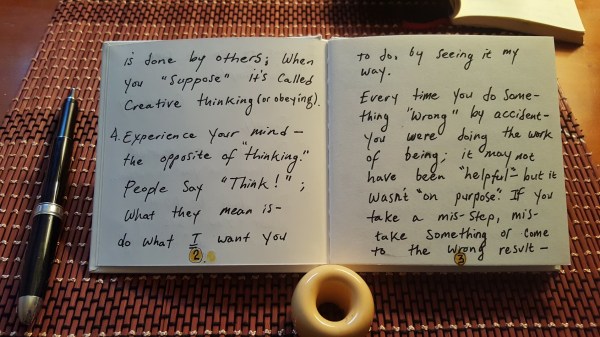 is done by others; When
you "Suppose" it's Called
Creative thinking (or obeying).
4. Experience your mind –
the opposite of "thinking."
People say "Think!";
What they mean is –
do what I want you
2.
to do, by seeing it my
way.
Every time you do some-
thing "wrong" by accident –
you were doing the work
of being; it may not
have been "helpful" but it
wasn't "on purpose". If you
take a mis-step, mis-
take something or come
to the wrong result –
3